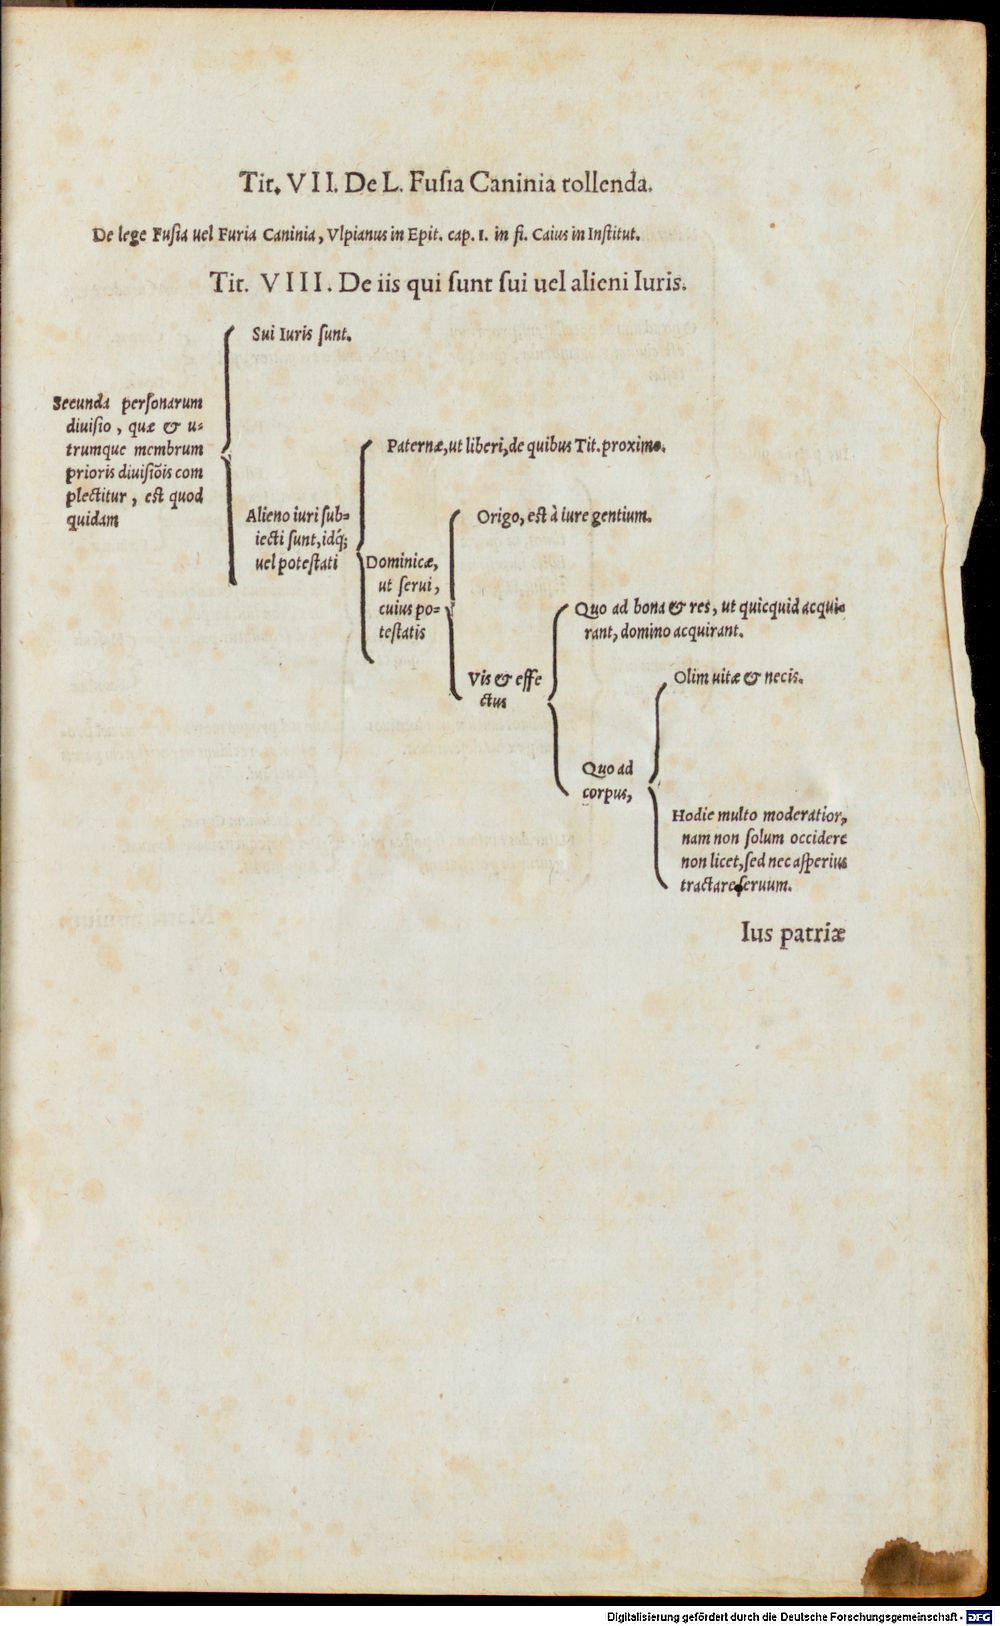 Tit. VII. De L. Fusia Caninia tollenda.
De lege Fusia uel Furia Caninia, Vlpianus in Epit. cap. 1. in fi. Caius in Institut.
Tit. VIII. De iis qui sunt sui uel alieni Iuris.
Secunda personarum
diuisio, quæ & u-
trumque membrum
prioris diuisiõis com
plectitur, est quod
quidam
Sui Iuris sunt.
Alieno iuri sub-
iecti sunt, idq́;
uel potestati
Paternæ, ut liberi, de quibus Tit. proximo.
Dominicæ,
ut serui,
cuius po-
testatis
Origo, est à iure gentium.
Vis & effe
ctus
Quo ad bona & res, ut quicquid acqui-
rant, domino acquirant.
Quo ad
corpus,
Olim uitæ & necis.
Hodie multo moderatior,
nam non solum occidere
non licet, sed nec asperius
tractare seruum.
Ius patriæ
Digitalisierung gefördert durch die Deutsche Forschungsgemeinschaft - DFG